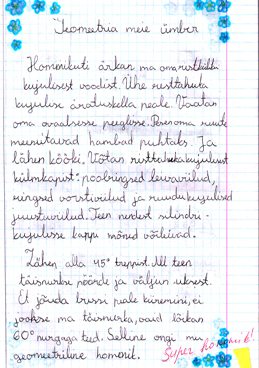 Geomeetria meie ümber
Hommikuti ärkan ma oma risttahuka
kujulisest voodist. Ühe risttahuka
kujulise äratuskella peale. Vaatan
oma ovaalsesse peeglisse. Pesen oma ruute
meenutavad hambad puhtaks. Ja
lähen kööki. Võtan risttahukakujulisest
külmkapist: poolringsed leivaviilud,
ringsed vorstiviilud ja ruudukujulised
juustuviilud. Teen nendest silindri-
kujulisse kappu mõned võileivad.
Lähen alla 45° trepist. All teen
täisnurkse pöörde ja väljun uksest.
Et jõuda bussi peale kiiremini, ei
jookse ma täisnurka, vaid lõikan
60° nurgaga teed. Selline ongi mu
geomeetriline hommik.
Super